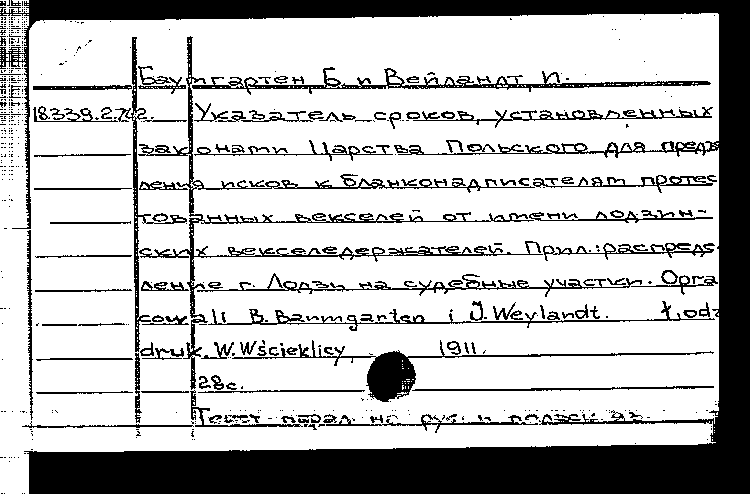 Баумгартен, Б. и Вейландт, И.
18.339.2.742. Указатель сроков, установленных
законами Царства Польского для предъя
ления исков к бланконадписателям протес
тованных векселей от имени лодзин-
ских векселедержателей. Прил.: распреде-
ление г. Лодзи на судебные участки. Opra
cowali B. Baumgarten i J. Weylandt. Łodź
druk. W. Wścieklicy, 1911.
28с.
Текст парал. на рус. и польск. яз.